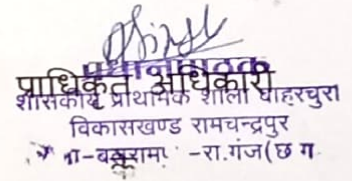 प्रधानपाठक
प्राधिकृत अधिकारी
शासकीय प्राथमिक शाला घाहरचुरा
विकासखण्ड रामचन्द्रपुर
-रा.गंज(छ ग